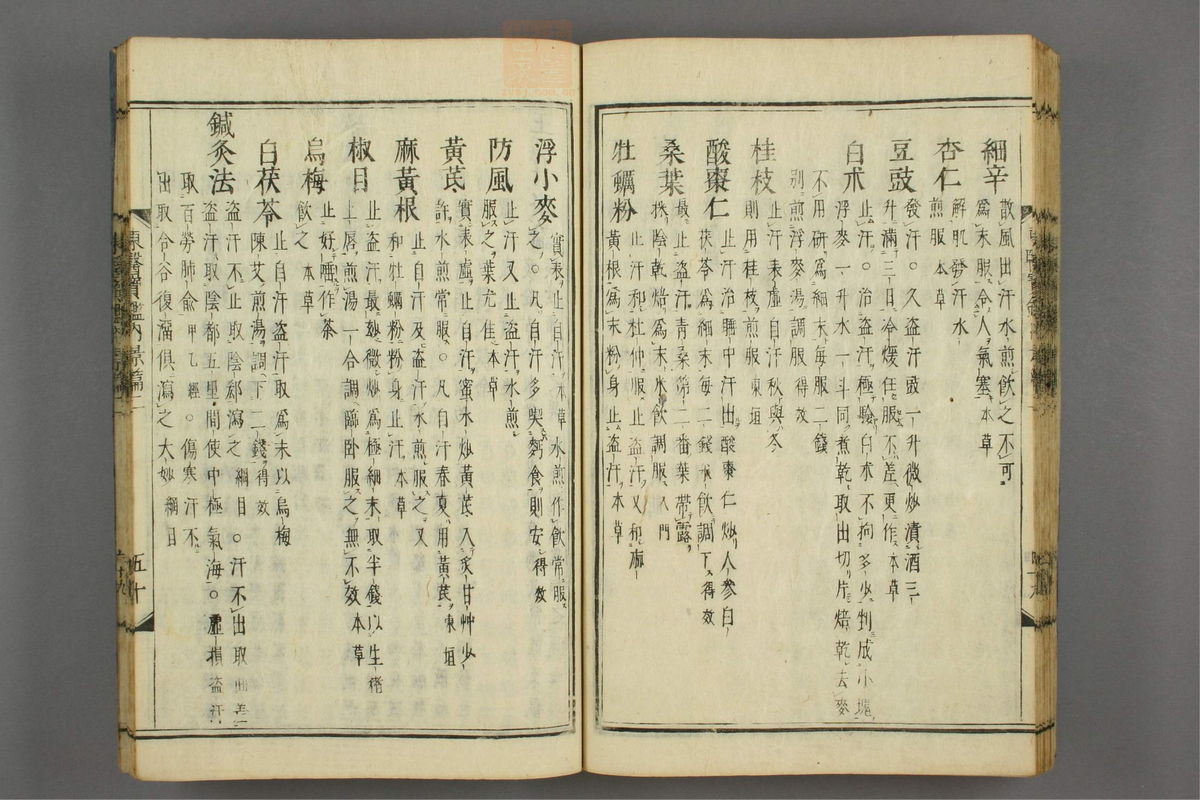 細辛 散風出汗水煎飲之不可
爲末服令人氣塞 本草
杏仁 解肌發汗水
煎服 本草
豆豉 發汗○久盜汗豉一升微炒漬酒三
升滿三日冷煖任服不差更作 本草
白朮 止汗○治盜汗極驗白朮不拘多少剉成小塊
浮麥一升水一斗同煮乾取出切片焙乾去麥
不用硏爲細末每服二錢
別煎浮麥湯調服 得效
桂枝 止表虛自汗秋與冬
則用桂枝煎服 東垣
酸棗仁 止汗治睡中汗出酸棗仁炒人參白
茯苓爲細末每二錢水飮調下 得效
桑葉 最止盜汗靑桑第二番葉帶露
採陰乾焙爲末水飮調服 入門
牡蠣粉 止汗和杜仲服止盜汗又和麻
黃根爲末粉身止盜汗 本草
浮小麥 實表止自汗 本草 水煎作飮常服
之○凡自汗多喫麪食則安 得效
防風 止汗又止盜汗水煎
服之葉尤佳 本草
黃芪 實表虛止自汗蜜水炒黃芪入炙甘艸少
許水煎常服○凡自汗春夏用黃芪 東垣
麻黃根 止自汗及盜汗水煎服之又
和牡蠣粉粉身止汗 本草
椒目 止盜汗最玅微炒爲極細末取半錢以生猪
上唇煎湯一合調臨臥服之無不效 本草
烏梅 止好睡作茶
飮之 本草
白茯苓 止自汗盜汗取爲末以烏梅
陳艾煎湯調下二錢 得效
鍼灸法 盜汗不止取陰郄瀉之 綱目 ○汗不出取曲差
盜汗取陰都五里間使中極氣海○虛損盜汗
取百勞肺兪 甲乙經 ○傷寒汗不
出取合谷復溜俱瀉之大妙 綱目
東醫寶鑑內景篇二
五十